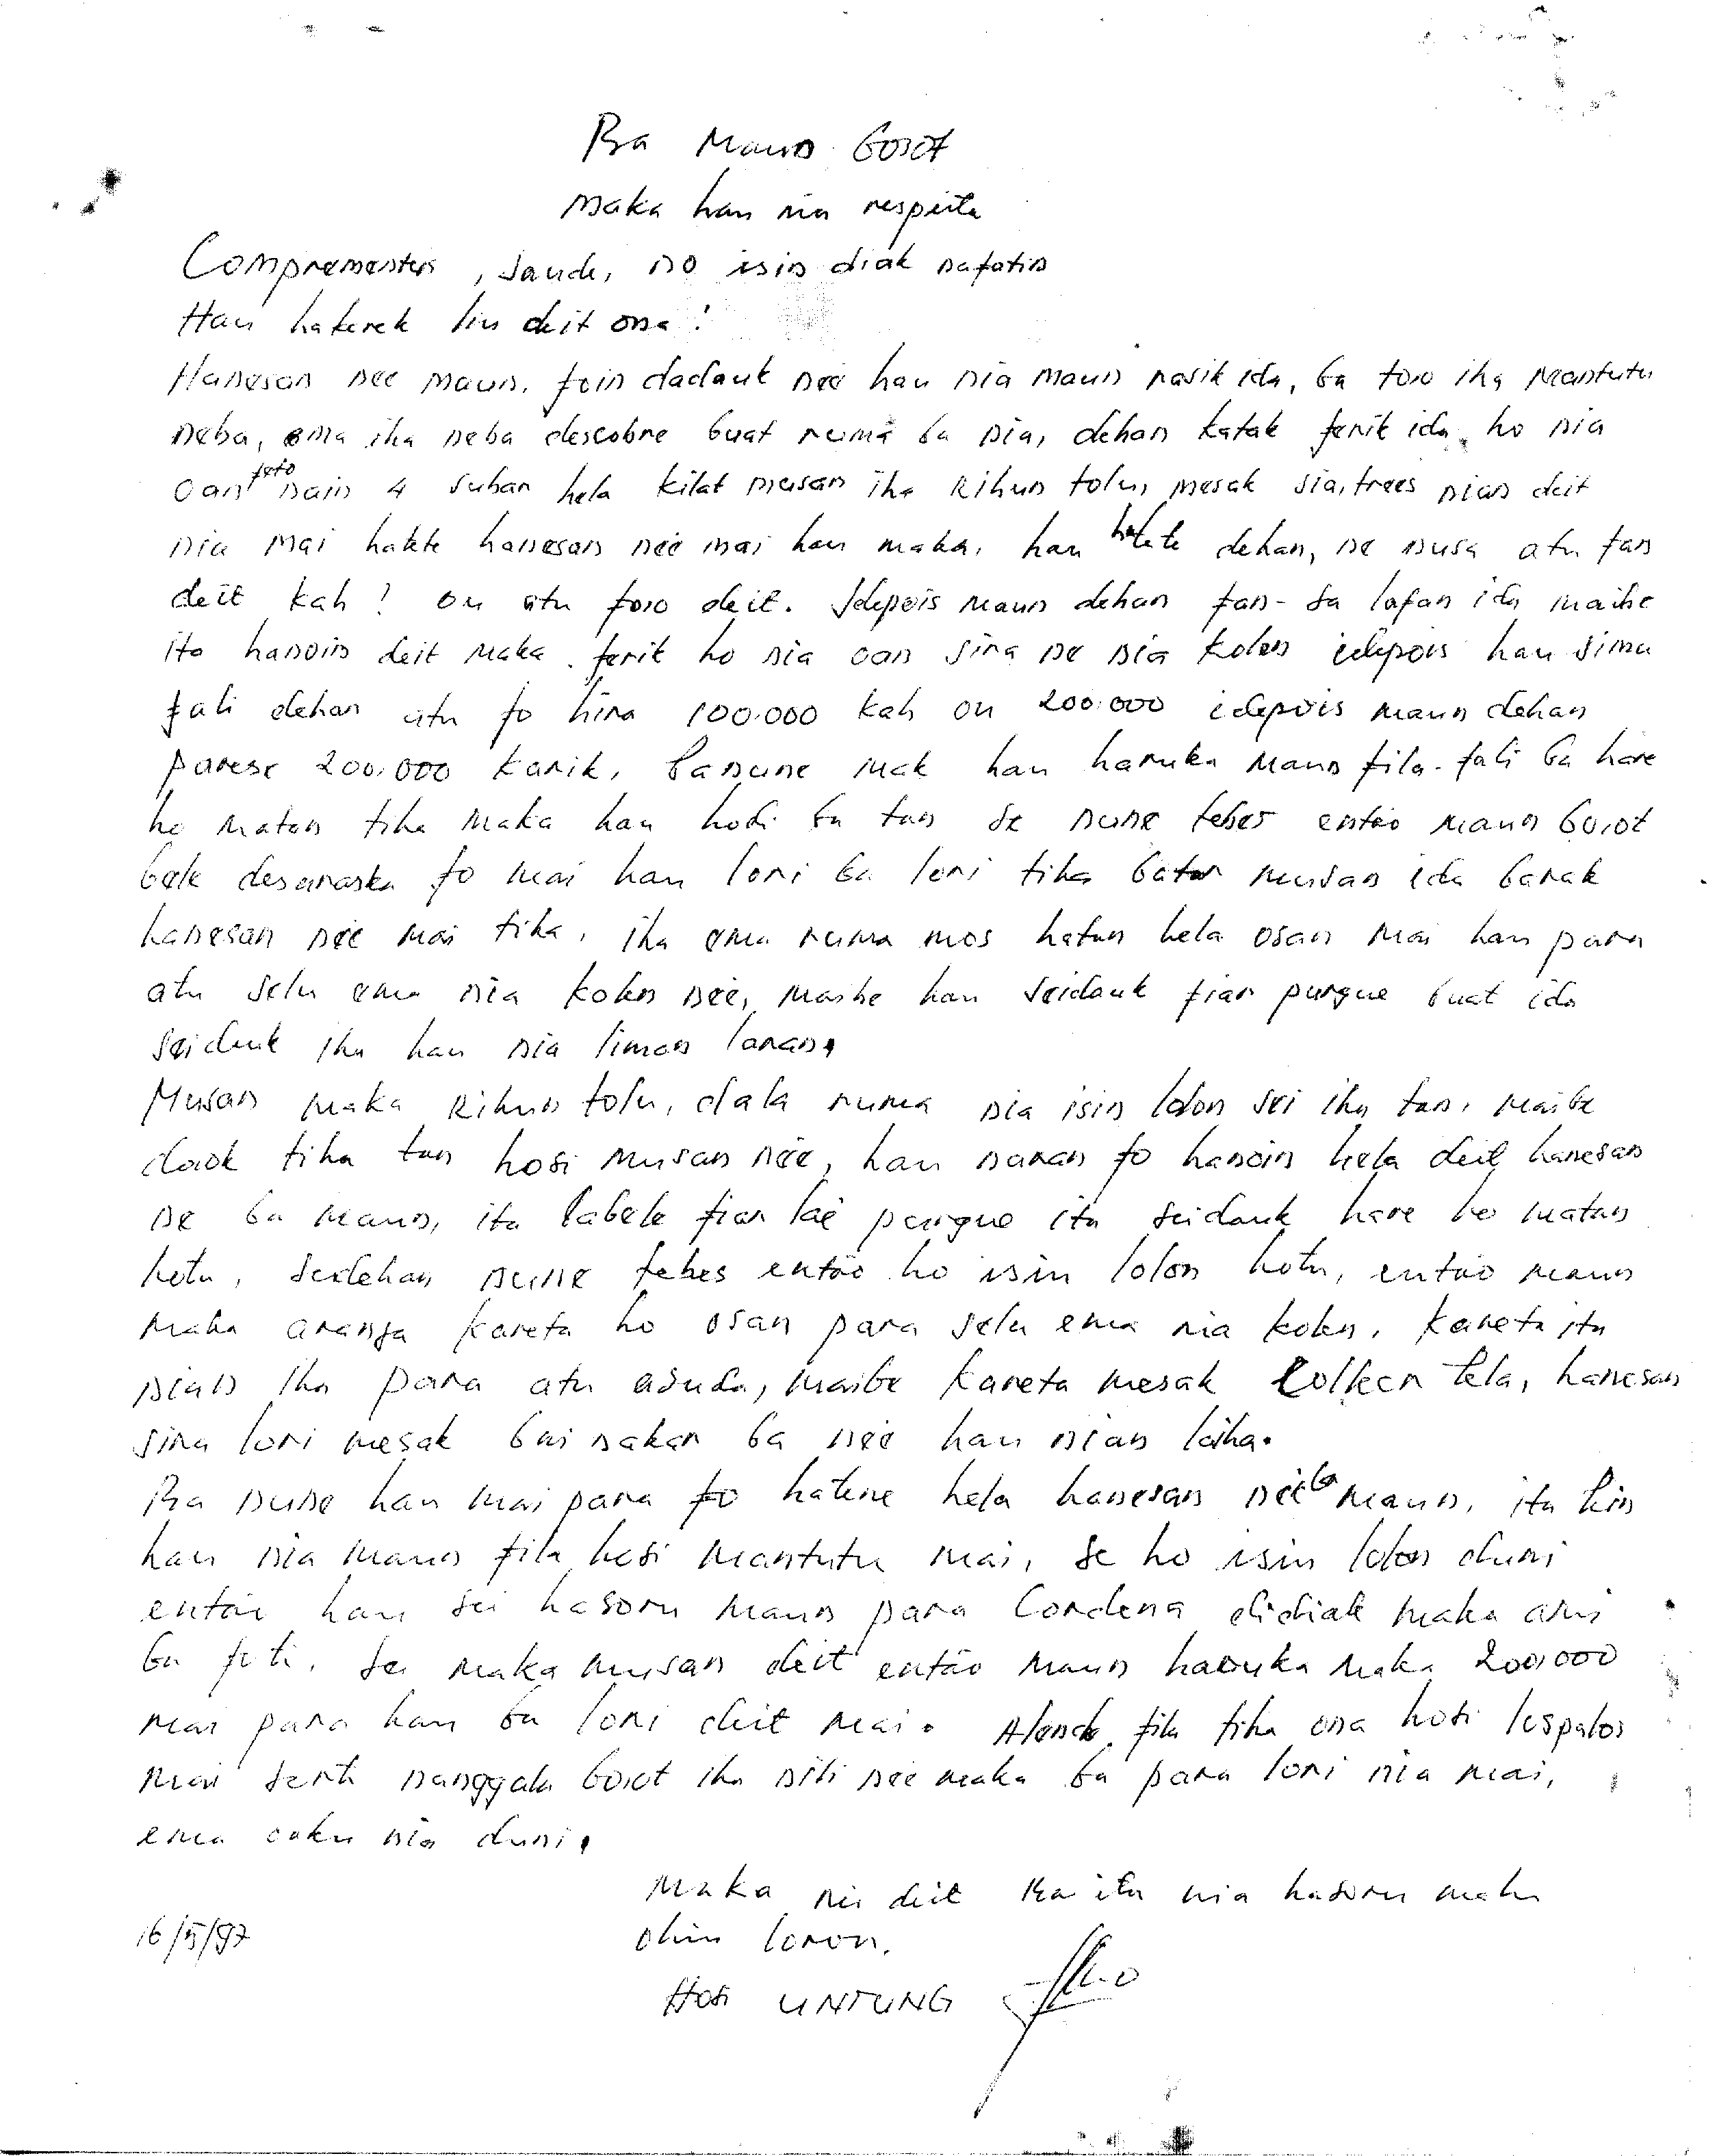 Ba Maun Boot
maka hau nia respeita
Comprementus, Saude, no isin diak nafatin
Hau hakerek liu deit ona!
Hanesan nee maun, foin dadauk nee hau nia maun rasik ida, ba too iha Mantutu
neba, ema iha neba descobre buat ruma ba nia, dehan katak ferik ida ho nia
oan feto nain 4 suban hela kilat musan iha Rihun tolu, mesak sia, trees nian deit
nia mai hakte hanesan nee mai hau maka, hau hatete dehan, ne nusa atu fan
deit kah! ou atu foo deit. Idepois maun dehan fan-sa lafan ida maibe
ita hanoin deit maka ferik ho nia oan sira ne nia kolen idepois hau simu
fali dehan atu fo hira 100.000 kah ou 200.000 idepois maun dehan
parese 200.000 karik, banune mak hau haruka maun fila-fali ba hare
ho matan tiha maka hau hodi ba tan se nune tebes então maun boot
bele desaraska fo mai hau lori ba lori tiha batar musan ida barak
hanesan nee mai tiha, iha ema ruma mos hatun hela osan mai hau para
atu selu ema nia kolen nee, maibe hau seidauk fiar purque buat ida
seidauk iha hau nia liman laran,
Musan maka Rihun tolu, dala ruma nia isin lolon sei iha tan, maibe
dook tiha tan hosi musan nee, hau naran fo hanoin hela deit hanesan
ne ba maun, ita labele fiar lae purque ita seidauk hare ho matan
hotu, sedehan nune tebes então ho isin lolon hotu, então maun
maka aranja kareta ho osan para selu ema nia kolen, kareta ita
nian iha para atu asuda, maibe kareta mesak tela, hanesan
sira lori mesak bainakar ba nee hau nian laiha.
Ba nune hau mai para fo hatene hela hanesan nee ba maun, ita hin
hau nia maun fila hosi Mantutu mai, se ho isin lolon duni
então hau sei hasoru maun para Cordena didiak maka ami
ba foti, se maka musan deit então maun haruka maka 200.000
mai para hau ba lori deit mai. Alende fila tiha ona hosi lospalos
mai nanggala boot iha Dili nee maka ba para lori nia mai,
ema caku nia duni,
Maka nee deit Ba ita nia hasoru malu
ohin loron.
16/5/97
Hosi UNTUNG